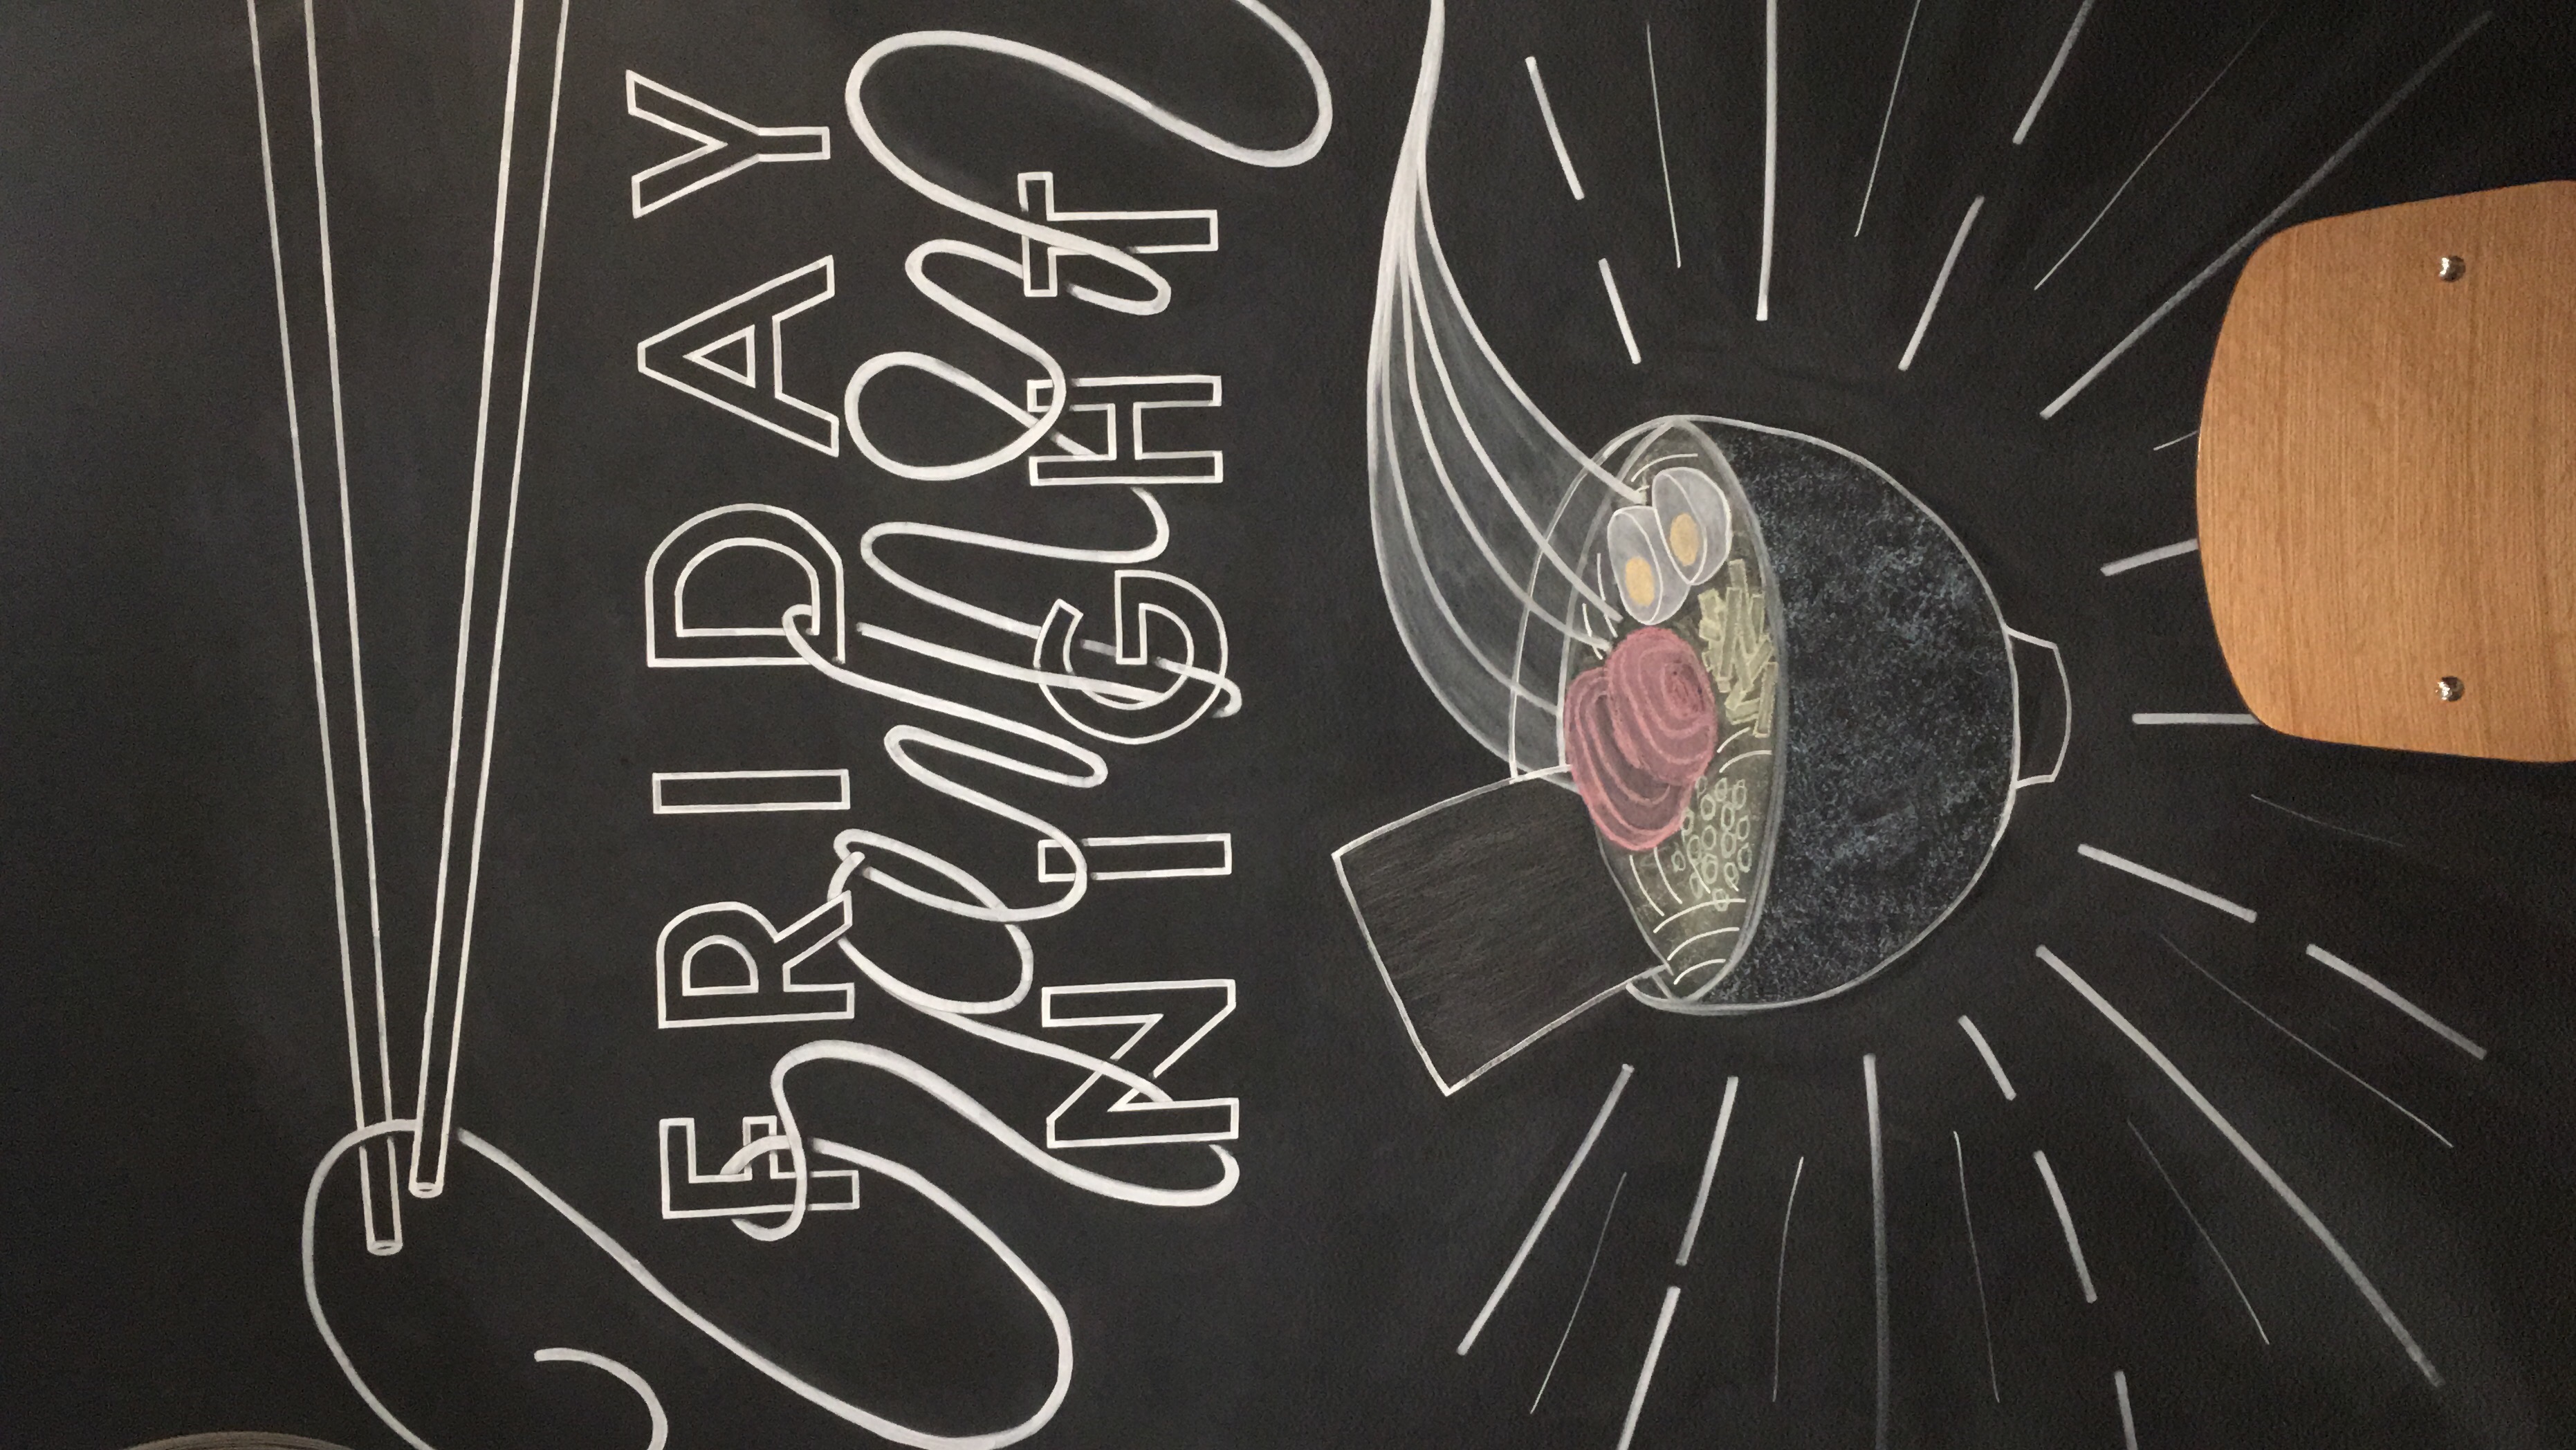 FRIDAY
Ramen
NIGHT